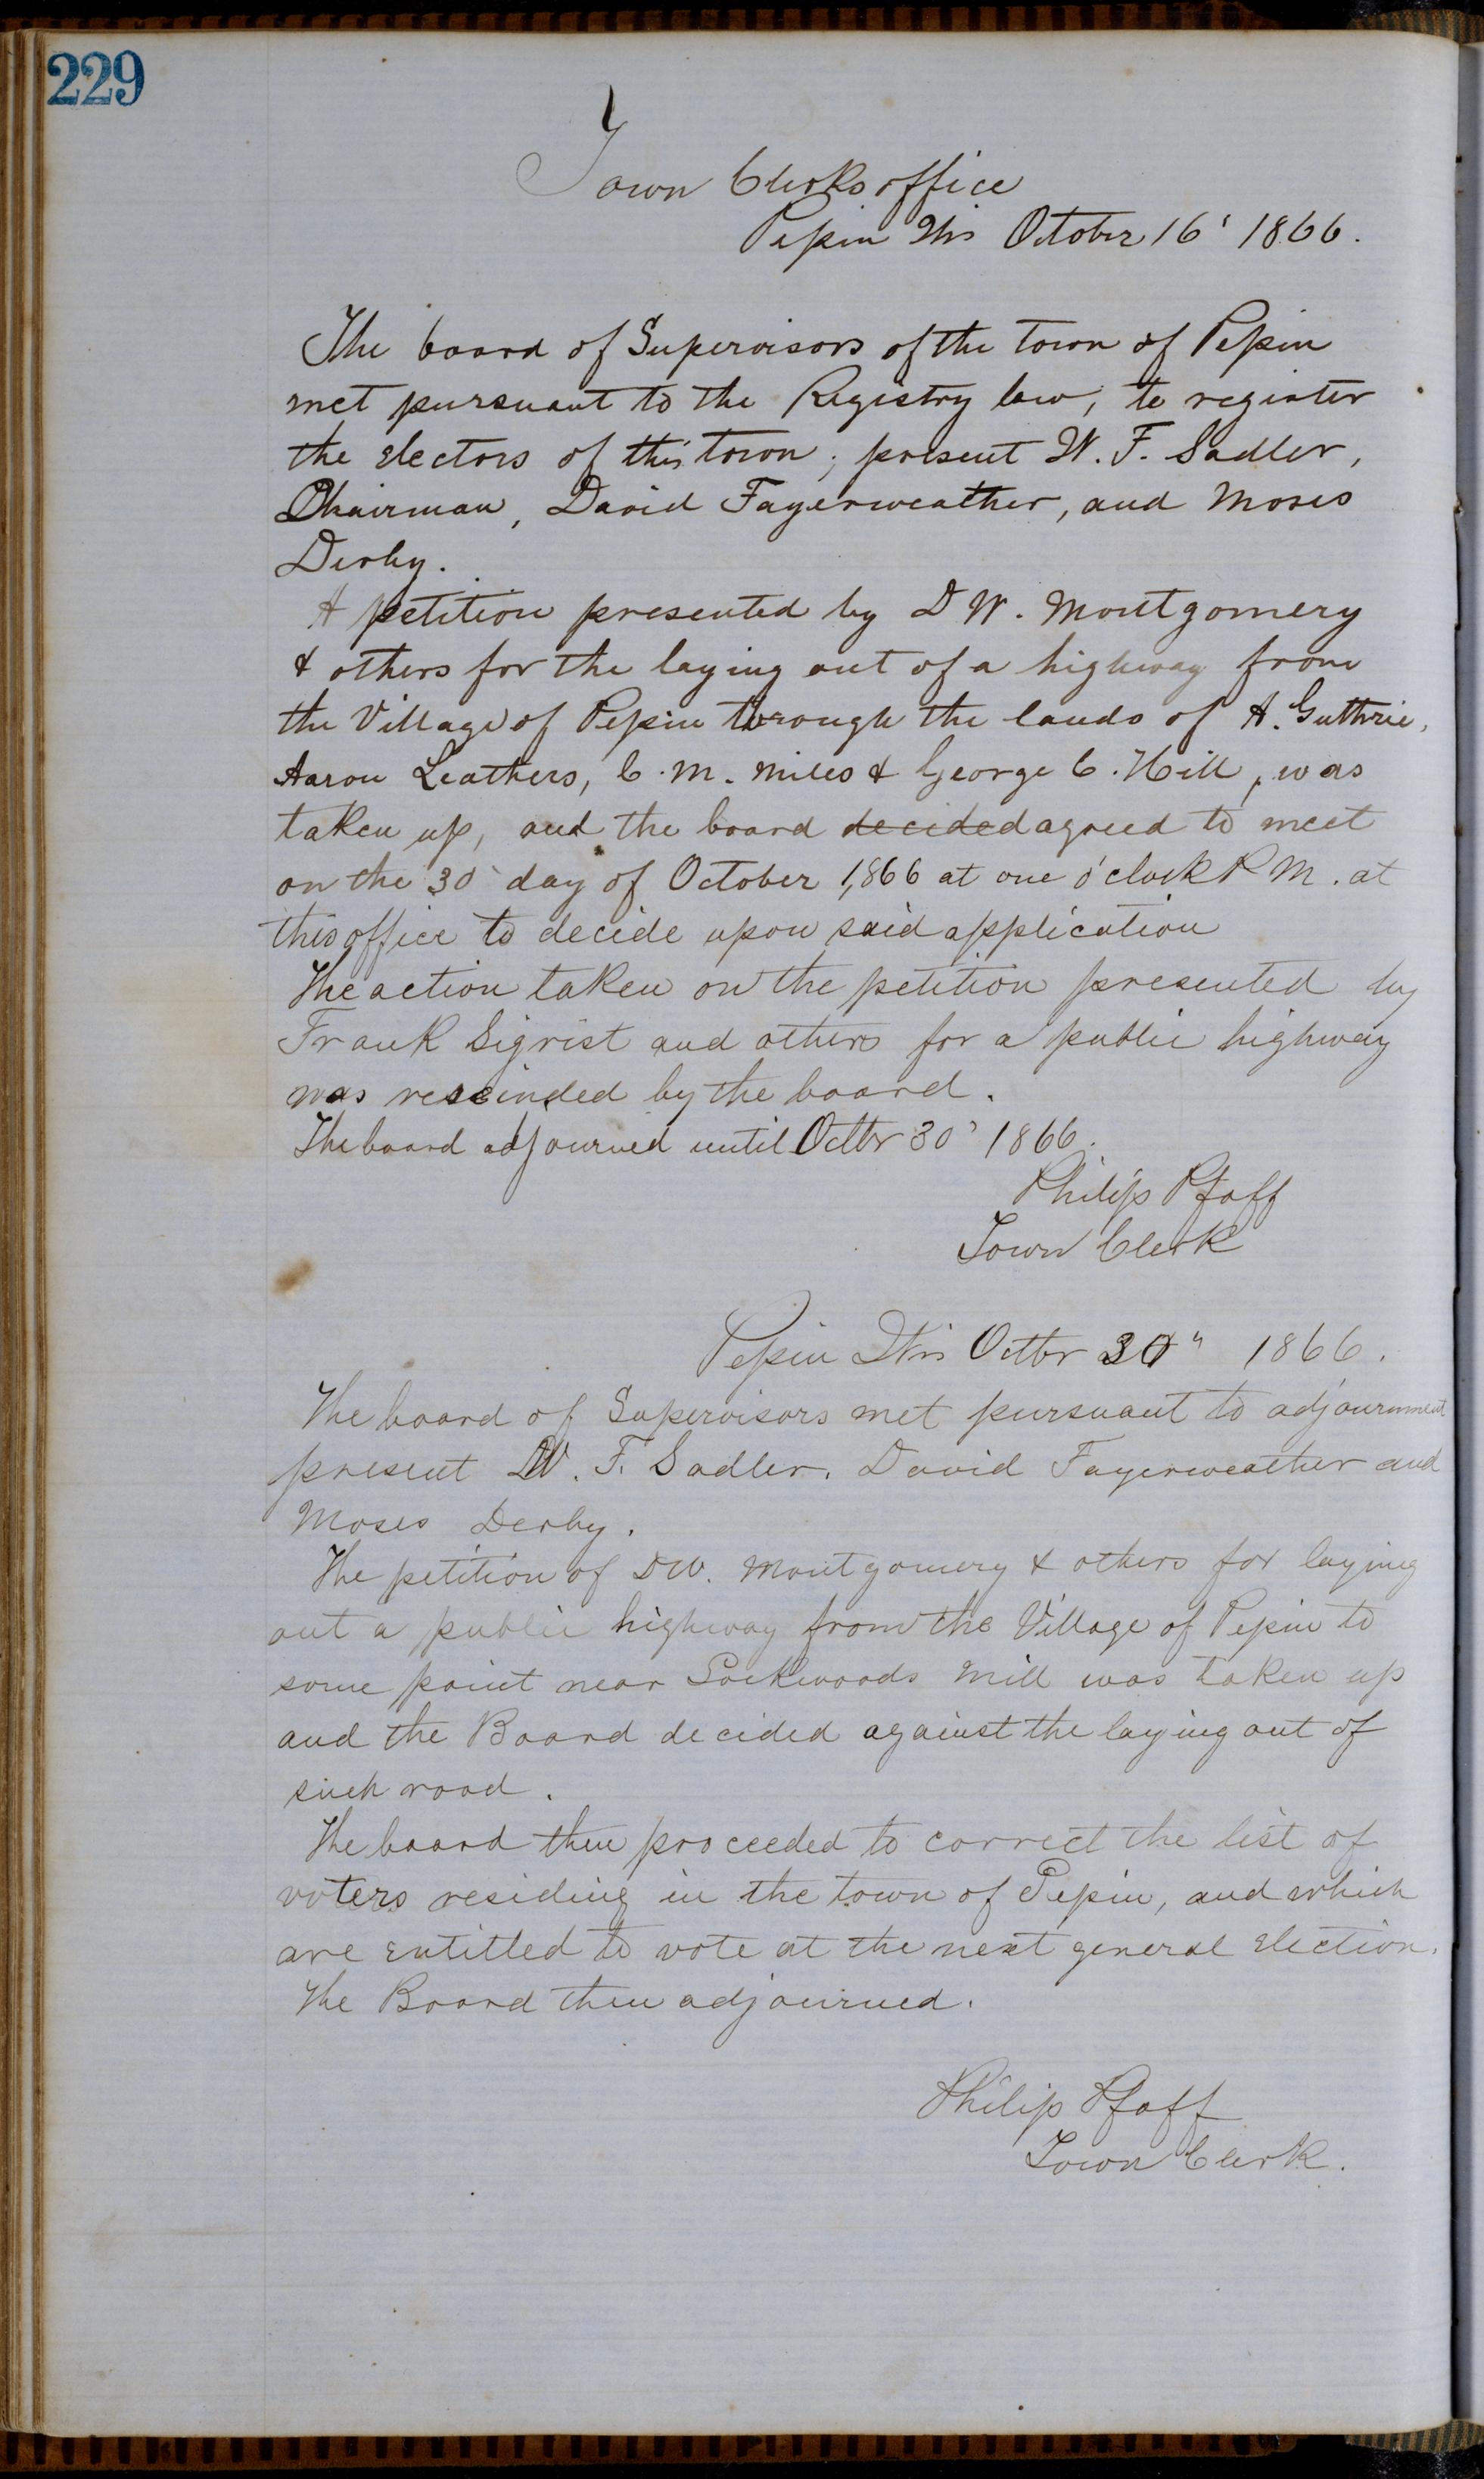 229
Town Clerks office
Pepin Wis October 16' 1866.
The board of Supervisors of the town of Pepin
met pursuant to the Registry law, to register
the electors of this town; present W. F. Sadler,
Chairman, David Fayerweather, and Moses
Derby.
A petition presented by D W. Montgomery
& others for the laying out of a highway from
the Village of Pepin through the lands of A. Guthrie,
Aaron Leathers, C. M. Miles & George C. Hill, was
taken up, and the board decided agreed to meet
on the 30' day of October 1,866 at one o'clock P M. at
this office to decide upon said application
The action taken on the petition presented by
Frank Sigrist and others for a public highway
was rescinded by the board.
The board adjourned until Octbr 30' 1866.
Philip Pfaff
Town Clerk
Pepin Wis Octbr 30" 1866.
The board of Supervisors met pursuant to adjournment
present W. F. Sadler, David Fayerweather and
Moses Derby.
The petition of D W. Montgomery & others for laying
out a public highway from the Village of Pepin to
some point near Lockwoods Mill was taken up
and the Board decided against the laying out of
such road.
The board then proceeded to correct the list of
voters residing in the town of Pepin, and which
are entitled to vote at the next general election.
The Board then adjourned.
Philip Pfaff
Town Clerk.